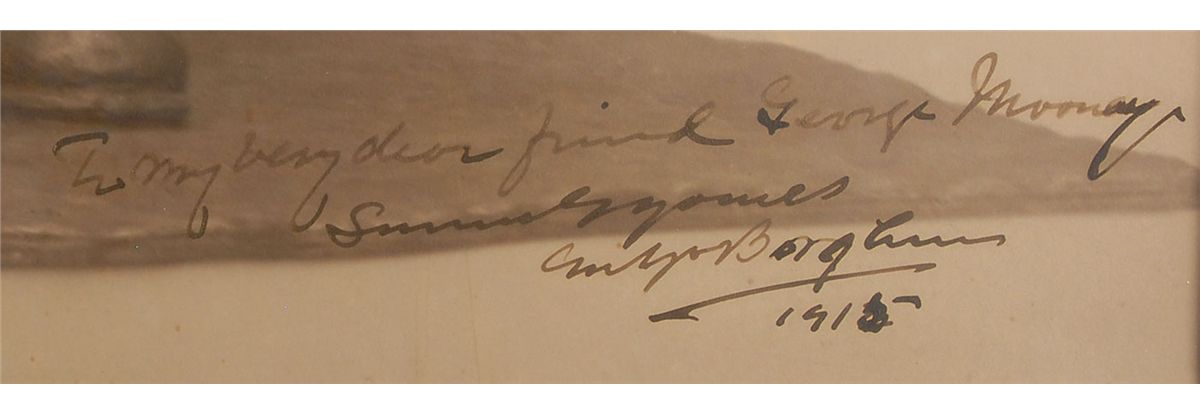 To my very dear friend George Mooney
Gutzon Borglum
1915